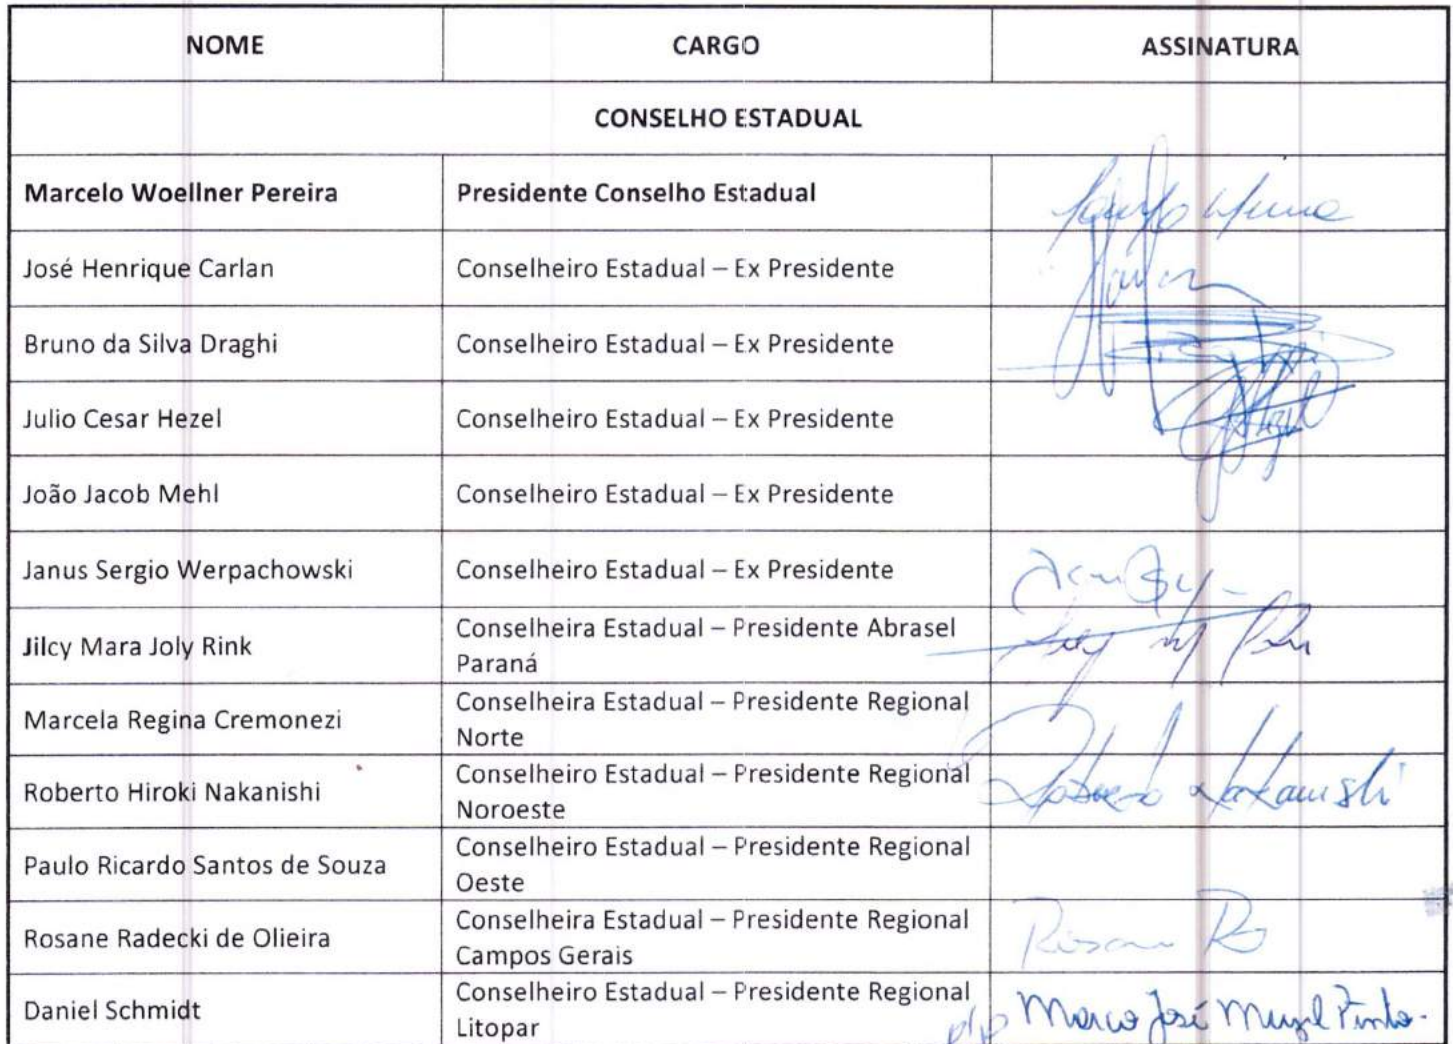 NOME CARGO ASSINATURA
CONSELHO ESTADUAL
Marcelo Woellner Pereira Presidente Conselho Estadual
José Henrique Carlan Conselheiro Estadual – Ex Presidente
Bruno da Silva Draghi Conselheiro Estadual – Ex Presidente
Julio Cesar Hezel Conselheiro Estadual – Ex Presidente
João Jacob Mehl Conselheiro Estadual – Ex Presidente
Janus Sergio Werpachowski Conselheiro Estadual – Ex Presidente
Jilcy Mara Joly Rink Conselheira Estadual – Presidente Abrasel
Paraná
Marcela Regina Cremonezi Conselheira Estadual – Presidente Regional
Norte
Roberto Hiroki Nakanishi Conselheiro Estadual – Presidente Regional Roberto Nakanishi
Noroeste
Paulo Ricardo Santos de Souza Conselheiro Estadual – Presidente Regional
Oeste
Rosane Radecki de Olieira Conselheira Estadual – Presidente Regional
Campos Gerais
Daniel Schmidt Conselheiro Estadual – Presidente Regional
Litopar p/p Marco José Pinto